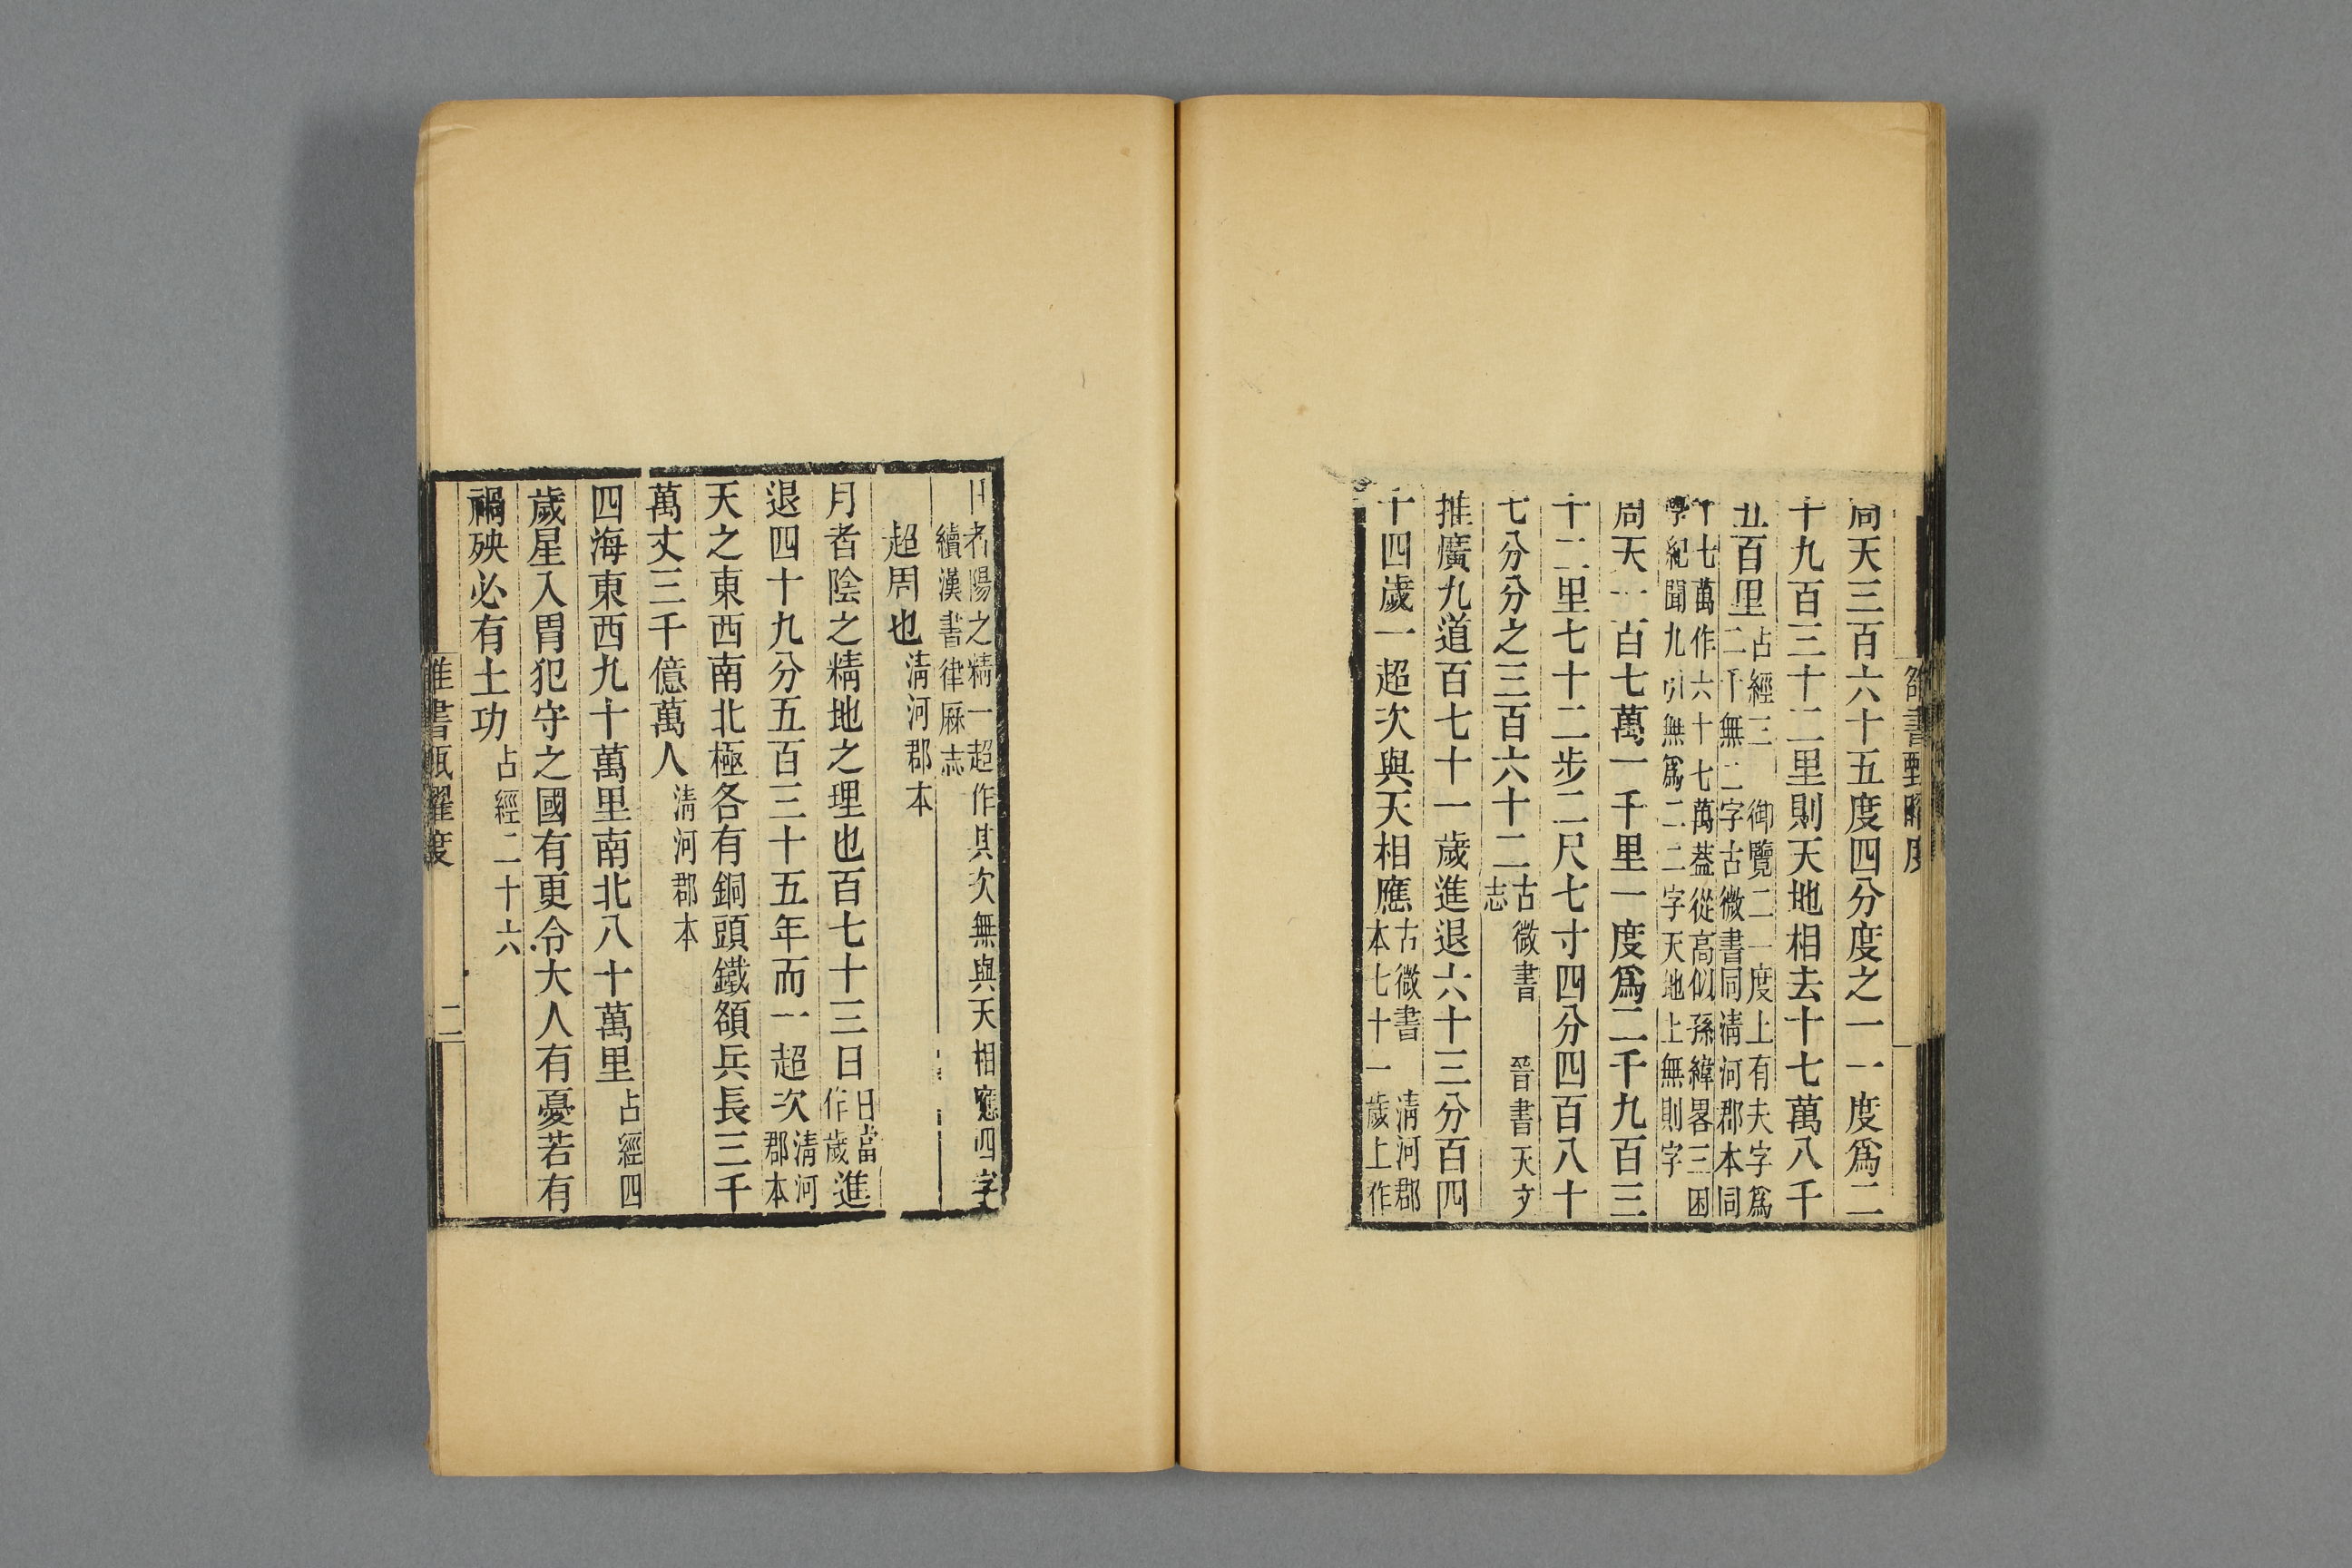 周天三百六十五度四分度之一一度爲二
千九百三十二里則天地相去十七萬八千
五百里占經三 御覽二一度上有夫字爲
二千無二字古微書同淸河郡本同
十七萬作六十七萬葢從高似孫緯畧三困
學紀聞九引無爲二二字天地上無則字
周天一百七萬一千里一度爲二千九百三
十二里七十二步二尺七寸四分四百八十
七分分之三百六十二古微書 晉書天文
志
推廣九道百七十一歲進退六十三分百四
十四歲一超次與天相應古微書 淸河郡
本七十一歲上作
日者陽之精一超作其次無與天相應四字
續漢書律厤志
超周也淸河郡本
月者陰之精地之理也百七十三日日當
作歲
進
退四十九分五百三十五年而一超次淸河
郡本
天之東西南北極各有銅頭鐵額兵長三千
萬丈三千億萬人淸河郡本
四海東西九十萬里南北八十萬里占經四
歲星入胃犯守之國有更令大人有憂若有
禍殃必有土功占經二十六
書甄耀度
二